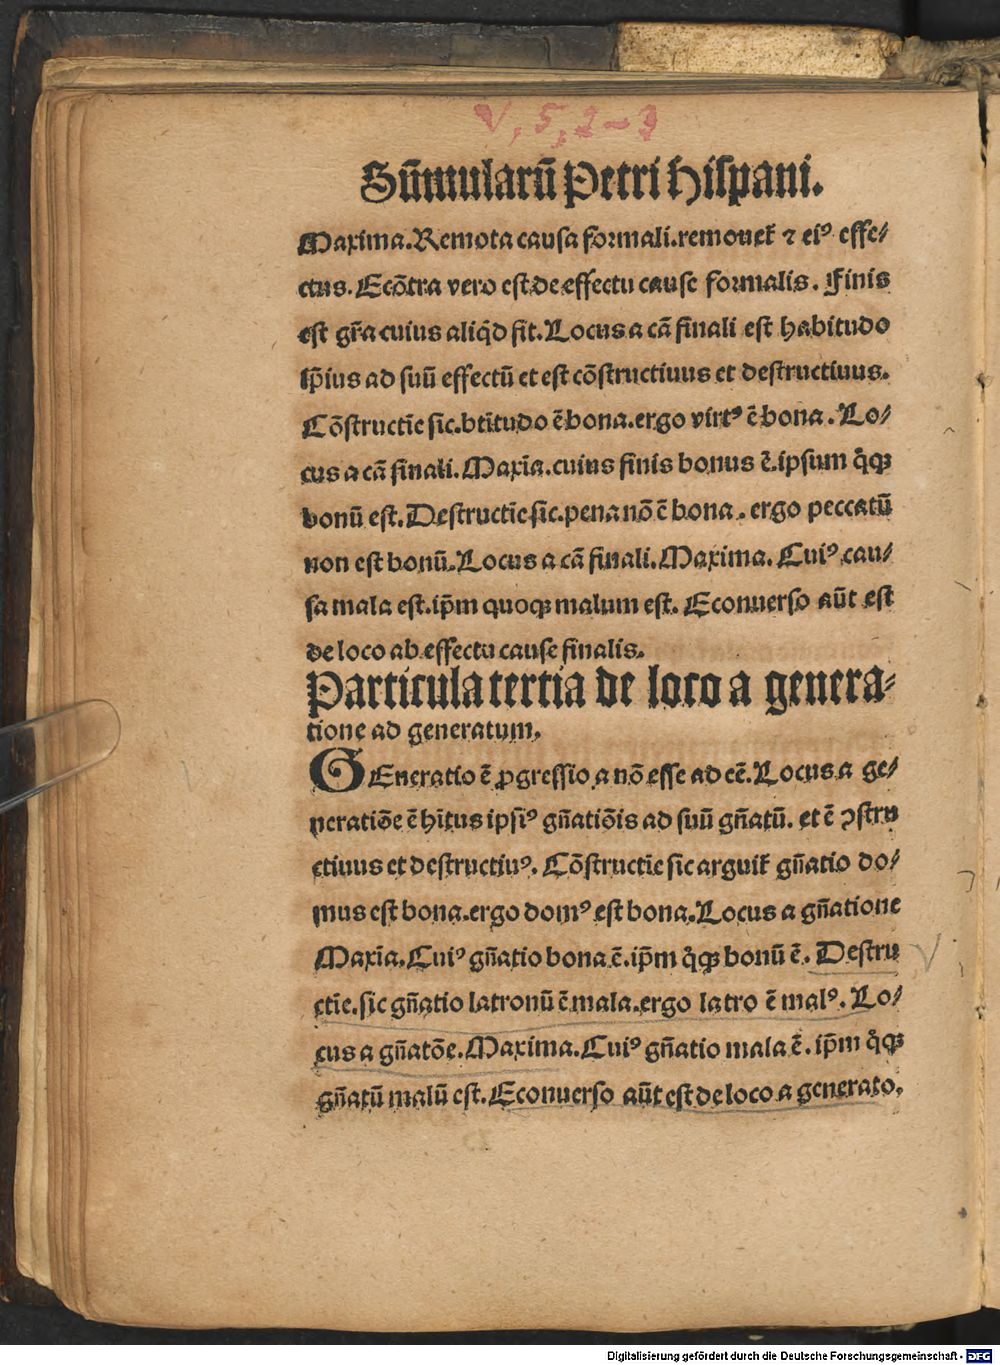 V, 5, 2–3
Sũmularũ Petri Hispani.
Maxima. Remota causa formali. remouet̃ ⁊ eiꝰ effe⸗
ctus. Ecõtra vero est de effectu cause formalis. Finis
est gr̃a cuius aliq̃d fit. Locus a cã finali est habitudo
ip̃ius ad suũ effectũ et est cõstructiuus et destructiuus.
Cõstructiẽ sic. btĩtudo ẽ bona. ergo virtꝰ ẽ bona. Lo⸗
cus a cã finali. Maxĩa. cuius finis bonus ẽ. ipsum q̃qꝫ
bonũ est. Destructiẽ sic. pena nõ ẽ bona. ergo peccatũ
non est bonũ. Locus a cã finali. Maxima. Cuiꝰ cau⸗
sa mala est. ip̃m quoqꝫ malum est. Econuerso aũt est
de loco ab effectu cause finalis.
Particula tertia de loco a genera⸗
tione ad generatum.
GEneratio ẽ ꝓgressio a nõ esse ad eẽ. Locus a ge⸗
neratiõe ẽ hĩtus ipsiꝰ gñatiõis ad suũ gñatũ. et ẽ ꝯstru
ctiuus et destructiuꝰ. Cõstructiẽ sic arguit̃ gñatio do⸗
mus est bona. ergo domꝰ est bona. Locus a gñatione
Maxĩa. Cuiꝰ gñatio bona ẽ. ip̃m q̃qꝫ bonũ ẽ. Destru
ctiẽ. sic gñatio latronũ ẽ mala. ergo latro ẽ malꝰ. Lo⸗
cus a gñatõe. Maxima. Cuiꝰ gñatio mala ẽ. ip̃m q̃qꝫ
gñatũ malũ est. Econuerso aũt est de loco a generato.
Digitalisierung gefördert durch die Deutsche Forschungsgemeinschaft - DFG